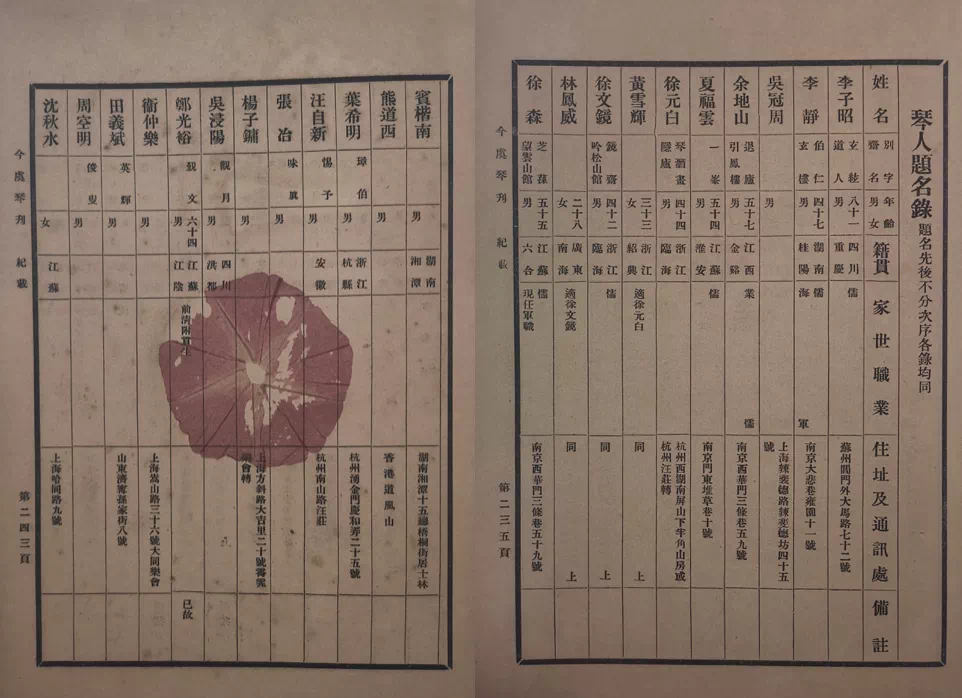 琴人題名錄 題名先後不分次序各錄均同
姓名 別字 齋名 年齡 男女 籍貫 家世職業 住址及通訊處 備註
李子昭 玄䊼道人 八十一 男 四川重慶 儒 蘇州閶門外大馬路七十二號
李靜 伯仁 玄樓 四十七 男 湖南桂陽 儒 海軍 南京大悲巷雍園十一號
吳冠周 男 上海辣斐德路辣斐德坊四十五號
余地山 退廬 引鳳樓 五十七 男 江西金谿 儒業 南京西華門三條巷五九號
夏福雲 一峯 五十四 男 江蘇淮安 儒 南京門東堆草巷十號
徐元白 琴酒畫隱廬 四十四 男 浙江臨海 杭州西湖南屏山下半角山房或杭州汪莊轉
黃雪輝 三十三 女 浙江紹興 適徐元白 同上
徐文鏡 鏡齋 吟松山館 四十二 男 浙江臨海 儒 同上
林鳳威 二十八 女 廣東南海 適徐文鏡 同上
徐森 芝蓀 望雲山館 五十五 男 江蘇六合 儒 現任軍職 南京西華門三條巷五十九號
今虞琴刊 紀載 第二三五頁
賓楷南 男 湖南湘潭 湖南湘潭十五總梧桐街居士林
熊道西 男 香港道風山
葉希明 璋伯 男 浙江杭縣 杭州湧金門慶和弄二十五號
汪自新 惕予 男 安徽 杭州南山路汪莊
張冶 味眞 男
楊子鏞 男 上海方斜路大吉里二十號霽霓樂會轉
吳浸陽 觀月 男 四川洪都
鄭光裕 覲文 六十四 男 江蘇江陰 前清附貢生 已故
衞仲樂 男 上海嵩山路三十六號大同樂會
田義斌 英輝 男 山東濟甯孫家街八號
周空明 俊叟 男
沈秋水 女 江蘇 上海哈同路九號
今虞琴刊 紀載 第二四三頁